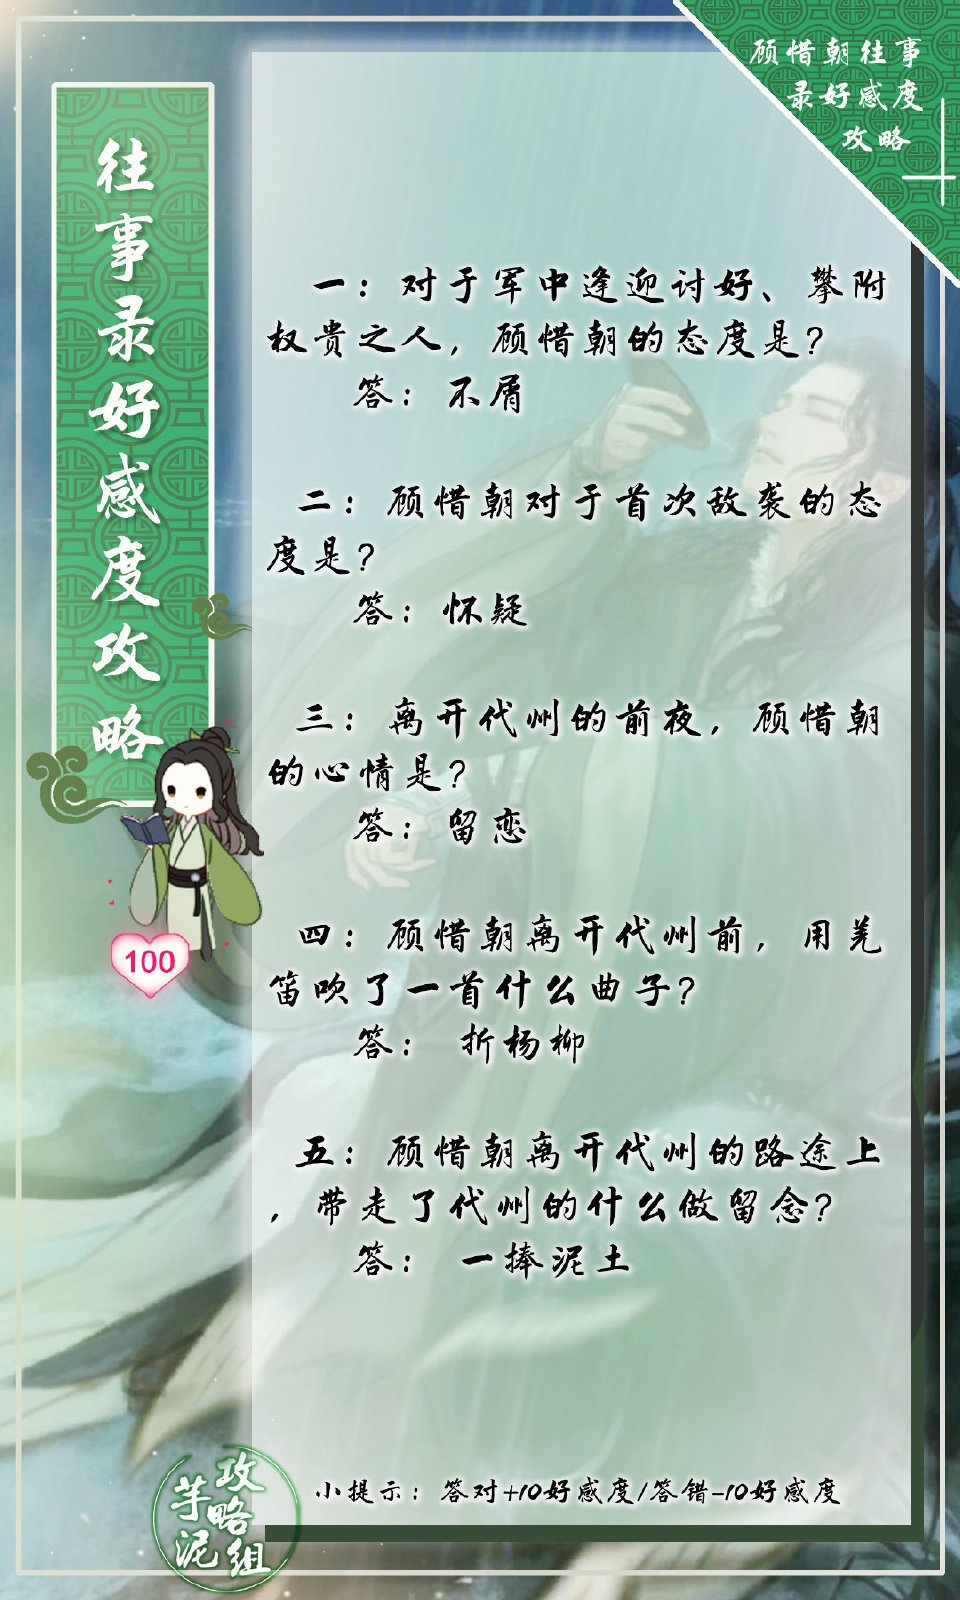 顾惜朝往事
录好感度
攻略
往事录好感度攻略
一：对于军中逢迎讨好、攀附
权贵之人，顾惜朝的态度是？
答：不屑
二：顾惜朝对于首次敌袭的态
度是？
答：怀疑
三：离开代州的前夜，顾惜朝
的心情是？
答：留恋
四：顾惜朝离开代州前，用羌
笛吹了一首什么曲子？
答：折杨柳
五：顾惜朝离开代州的路途上
，带走了代州的什么做留念？
答：一捧泥土
100
小提示：答对+10好感度/答错-10好感度
芋泥
攻略组